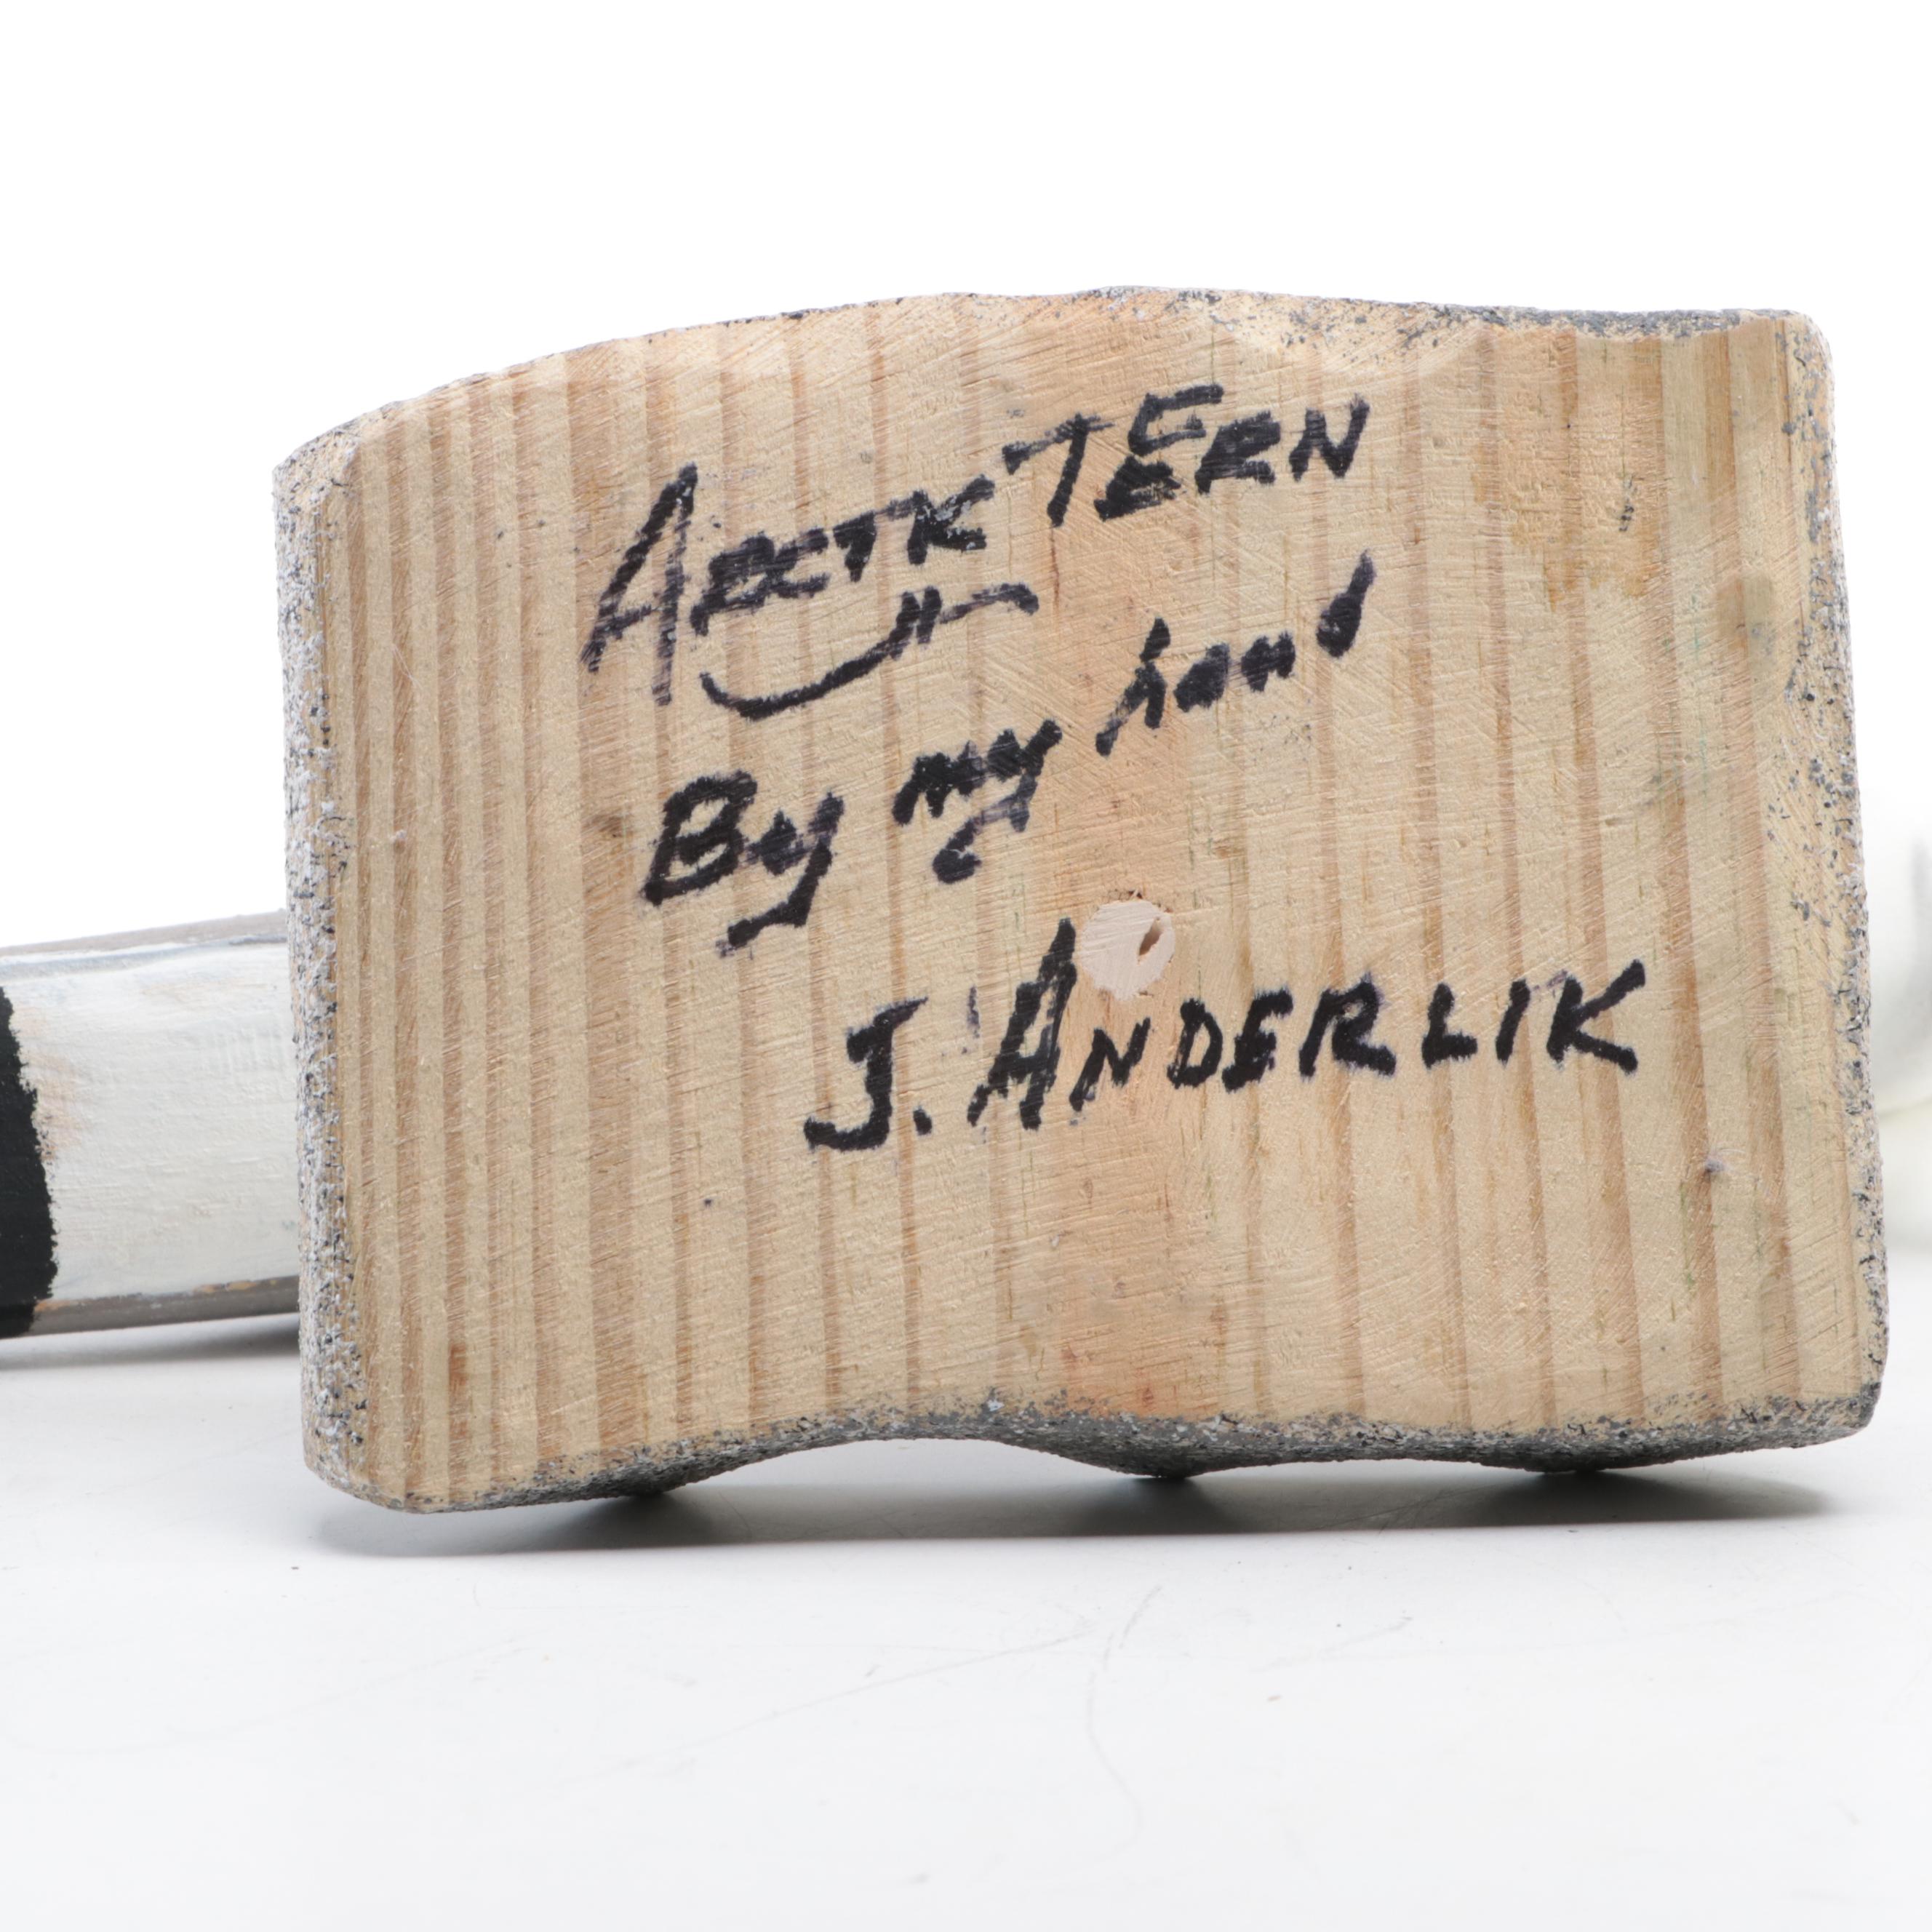 ARCTIC TERN
By my hand
J. ANDERLIK